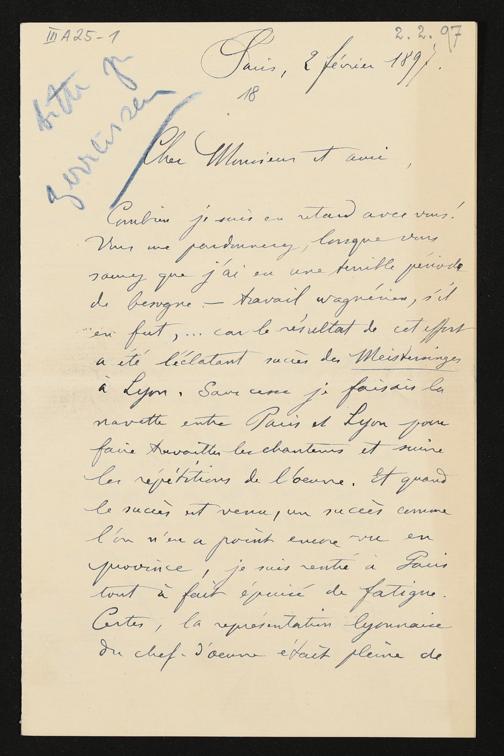 III A 25-1
2.2.97
Paris, 2 février 1897.
18
bitte
Cher Monsieur et ami,
Combien je suis en retard avec vous!
Vous me pardonnerez, lorsque vous
saurez que j'ai eu une terrible période
de besogne. — travail wagnérien, s'il
en fut, ... car le résultat de cet effort
a été l'éclatant succès des Meistersinger
à Lyon. Sans cesse je faisais la
navette entre Paris et Lyon pour
faire travailler les chanteurs et suivre
les répétitions de l'oeuvre. Et quand
le succès est venu, un succès comme
l'on n'en a point encore vu en
province, je suis rentré à Paris
tout à fait épuisé de fatigue.
Certes, la représentation lyonnaise
du chef-d'oeuvre était pleine de